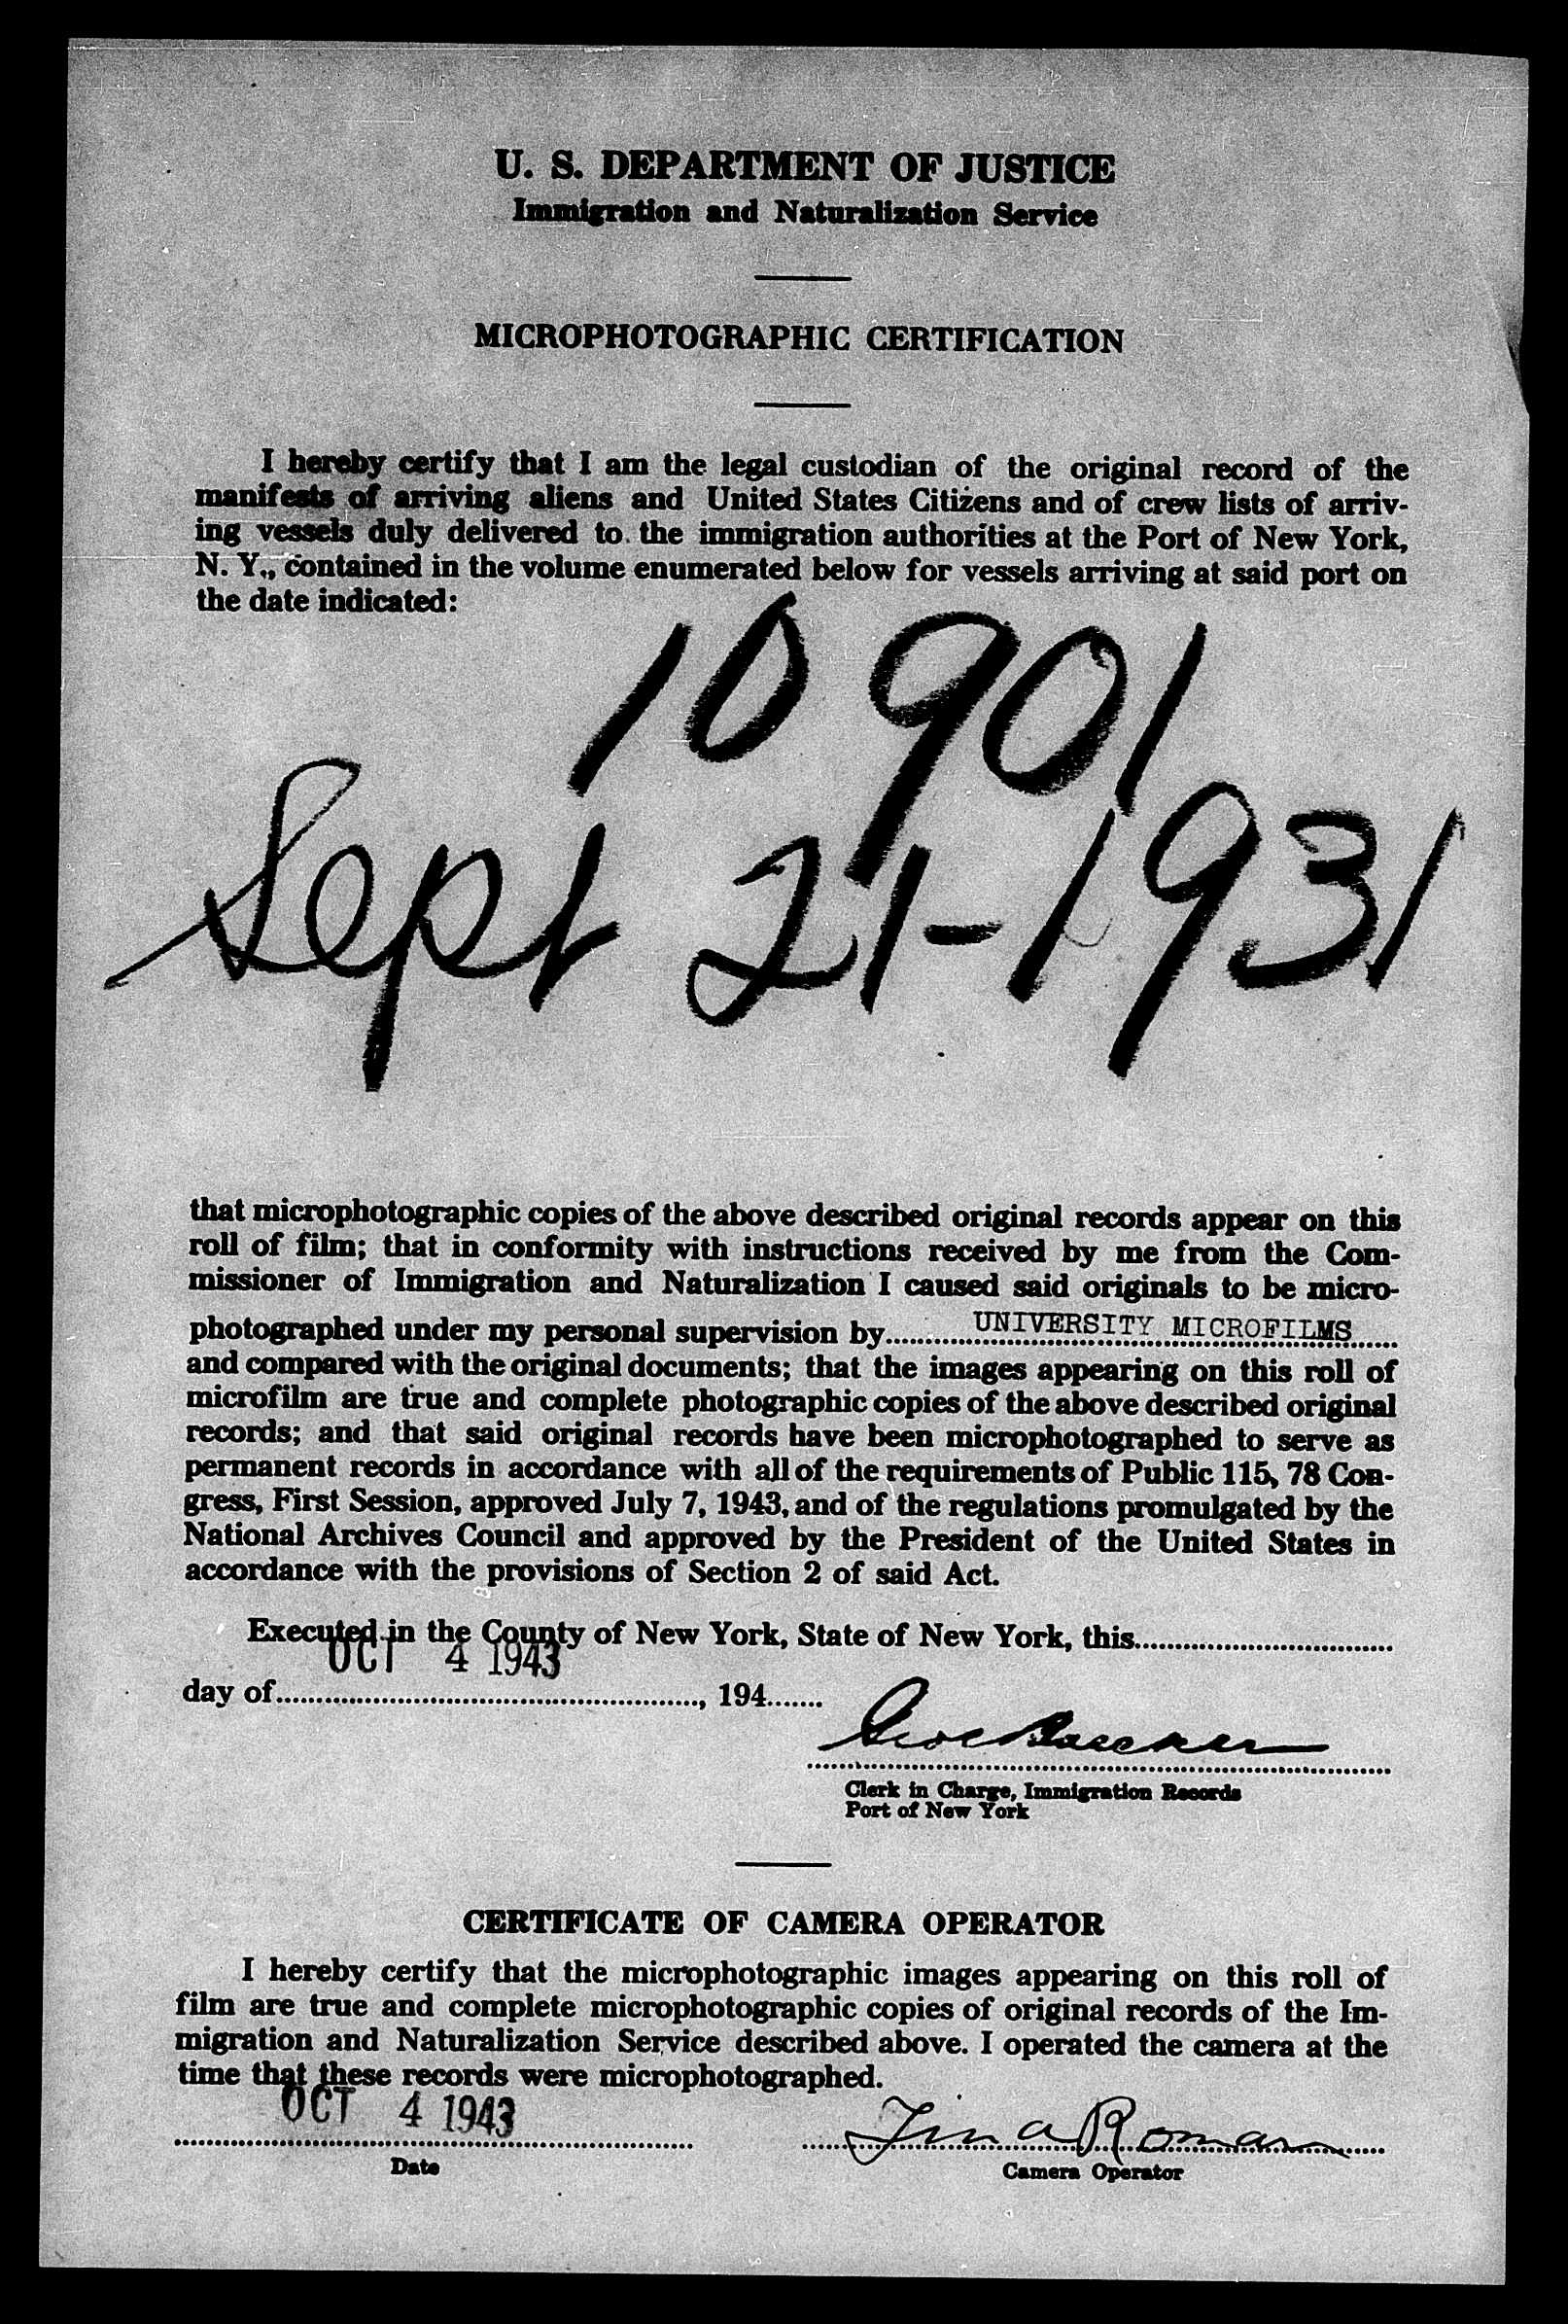 U. S. DEPARTMENT OF JUSTICE
Immigration and Naturalization Service
MICROPHOTOGRAPHIC CERTIFICATION
I hereby certify that I am the legal custodian of the original record of the
manifests of arriving aliens and United States Citizens and of crew lists of arriv-
ing vessels duly delivered to the immigration authorities at the Port of New York,
N. Y., contained in the volume enumerated below for vessels arriving at said port on
the date indicated:
10901
Sept 21-1931
that microphotographic copies of the above described original records appear on this
roll of film; that in conformity with instructions received by me from the Com-
missioner of Immigration and Naturalization I caused said originals to be micro-
photographed under my personal supervision by UNIVERSITY MICROFILMS
and compared with the original documents; that the images appearing on this roll of
microfilm are true and complete photographic copies of the above described original
records; and that said original records have been microphotographed to serve as
permanent records in accordance with all of the requirements of Public 115, 78 Con-
gress, First Session, approved July 7, 1943, and of the regulations promulgated by the
National Archives Council and approved by the President of the United States in
accordance with the provisions of Section 2 of said Act.
Executed in the County of New York, State of New York, this
OCT 4 1943
day of, 194
Clerk in Charge, Immigration Records
Port of New York
CERTIFICATE OF CAMERA OPERATOR
I hereby certify that the microphotographic images appearing on this roll of
film are true and complete microphotographic copies of original records of the Im-
migration and Naturalization Service described above. I operated the camera at the
time that these records were microphotographed.
OCT 4 1943
Tina Roman
Date
Camera Operator